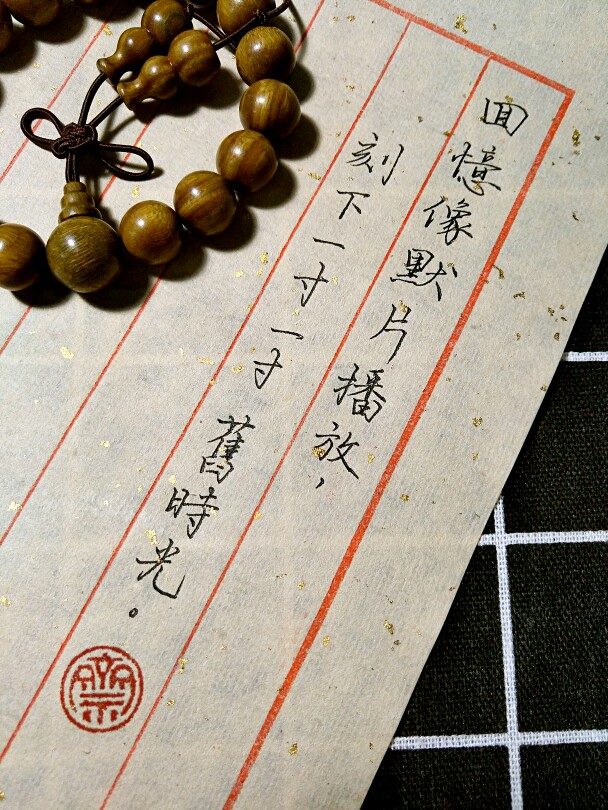 囬憶像默片播放，
刻下一寸一寸舊時光。